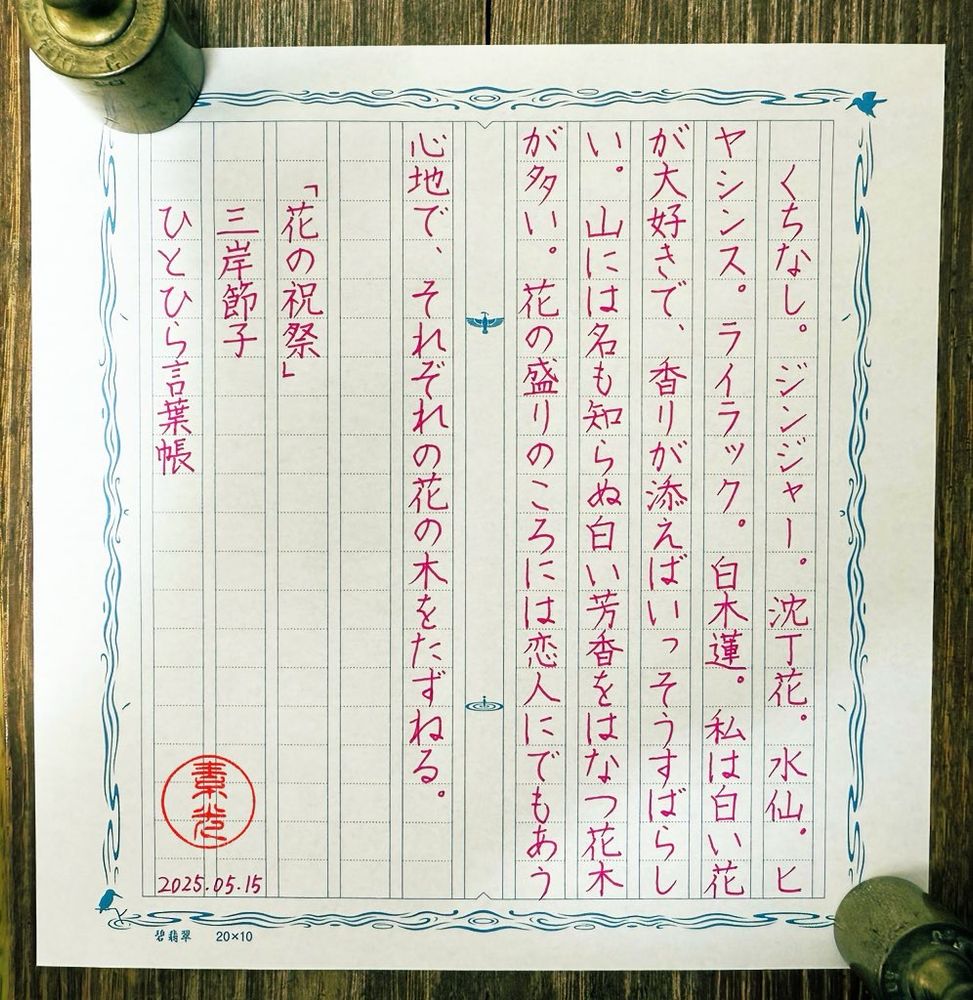 くちなし。ジンジャー。沈丁花。水仙。ヒ
ヤシンス。ライラック。白木蓮。私は白い花
が大好きで、香りが添えばいっそうすばらし
い。山には名も知らぬ白い芳香をはなつ花木
が多い。花の盛りのころには恋人にでもあう
心地で、それぞれの花の木をたずねる。
「花の祝祭」
三岸節子
ひとひら言葉帳
2025.05.15
碧翡翠 20×10